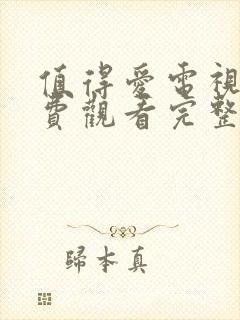 值得愛電視
費觀看完整
歸本真